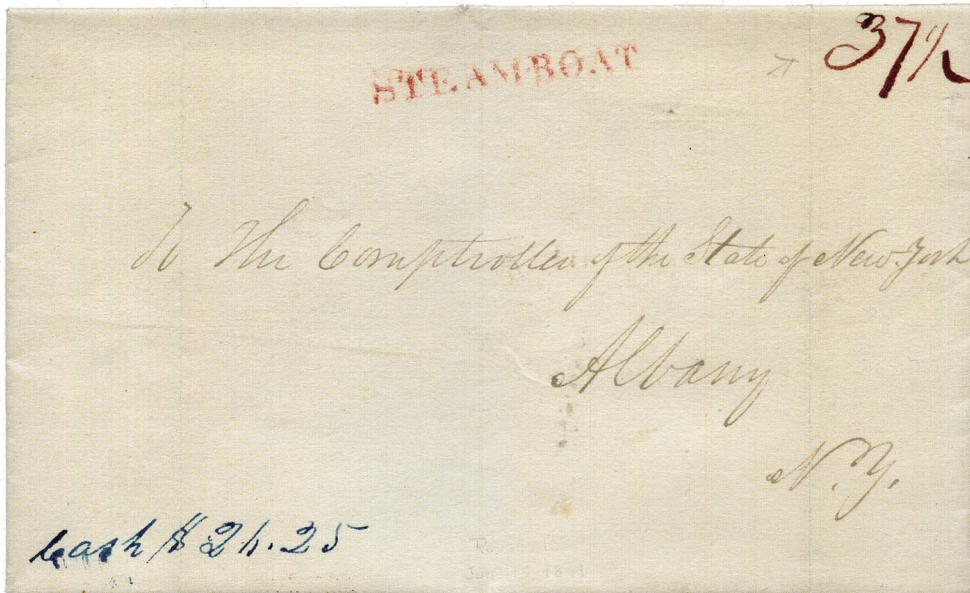 STEAMBOAT
37½
To The Comptroller of the State of New York
Albany
N. Y.
Cash $ 26.25